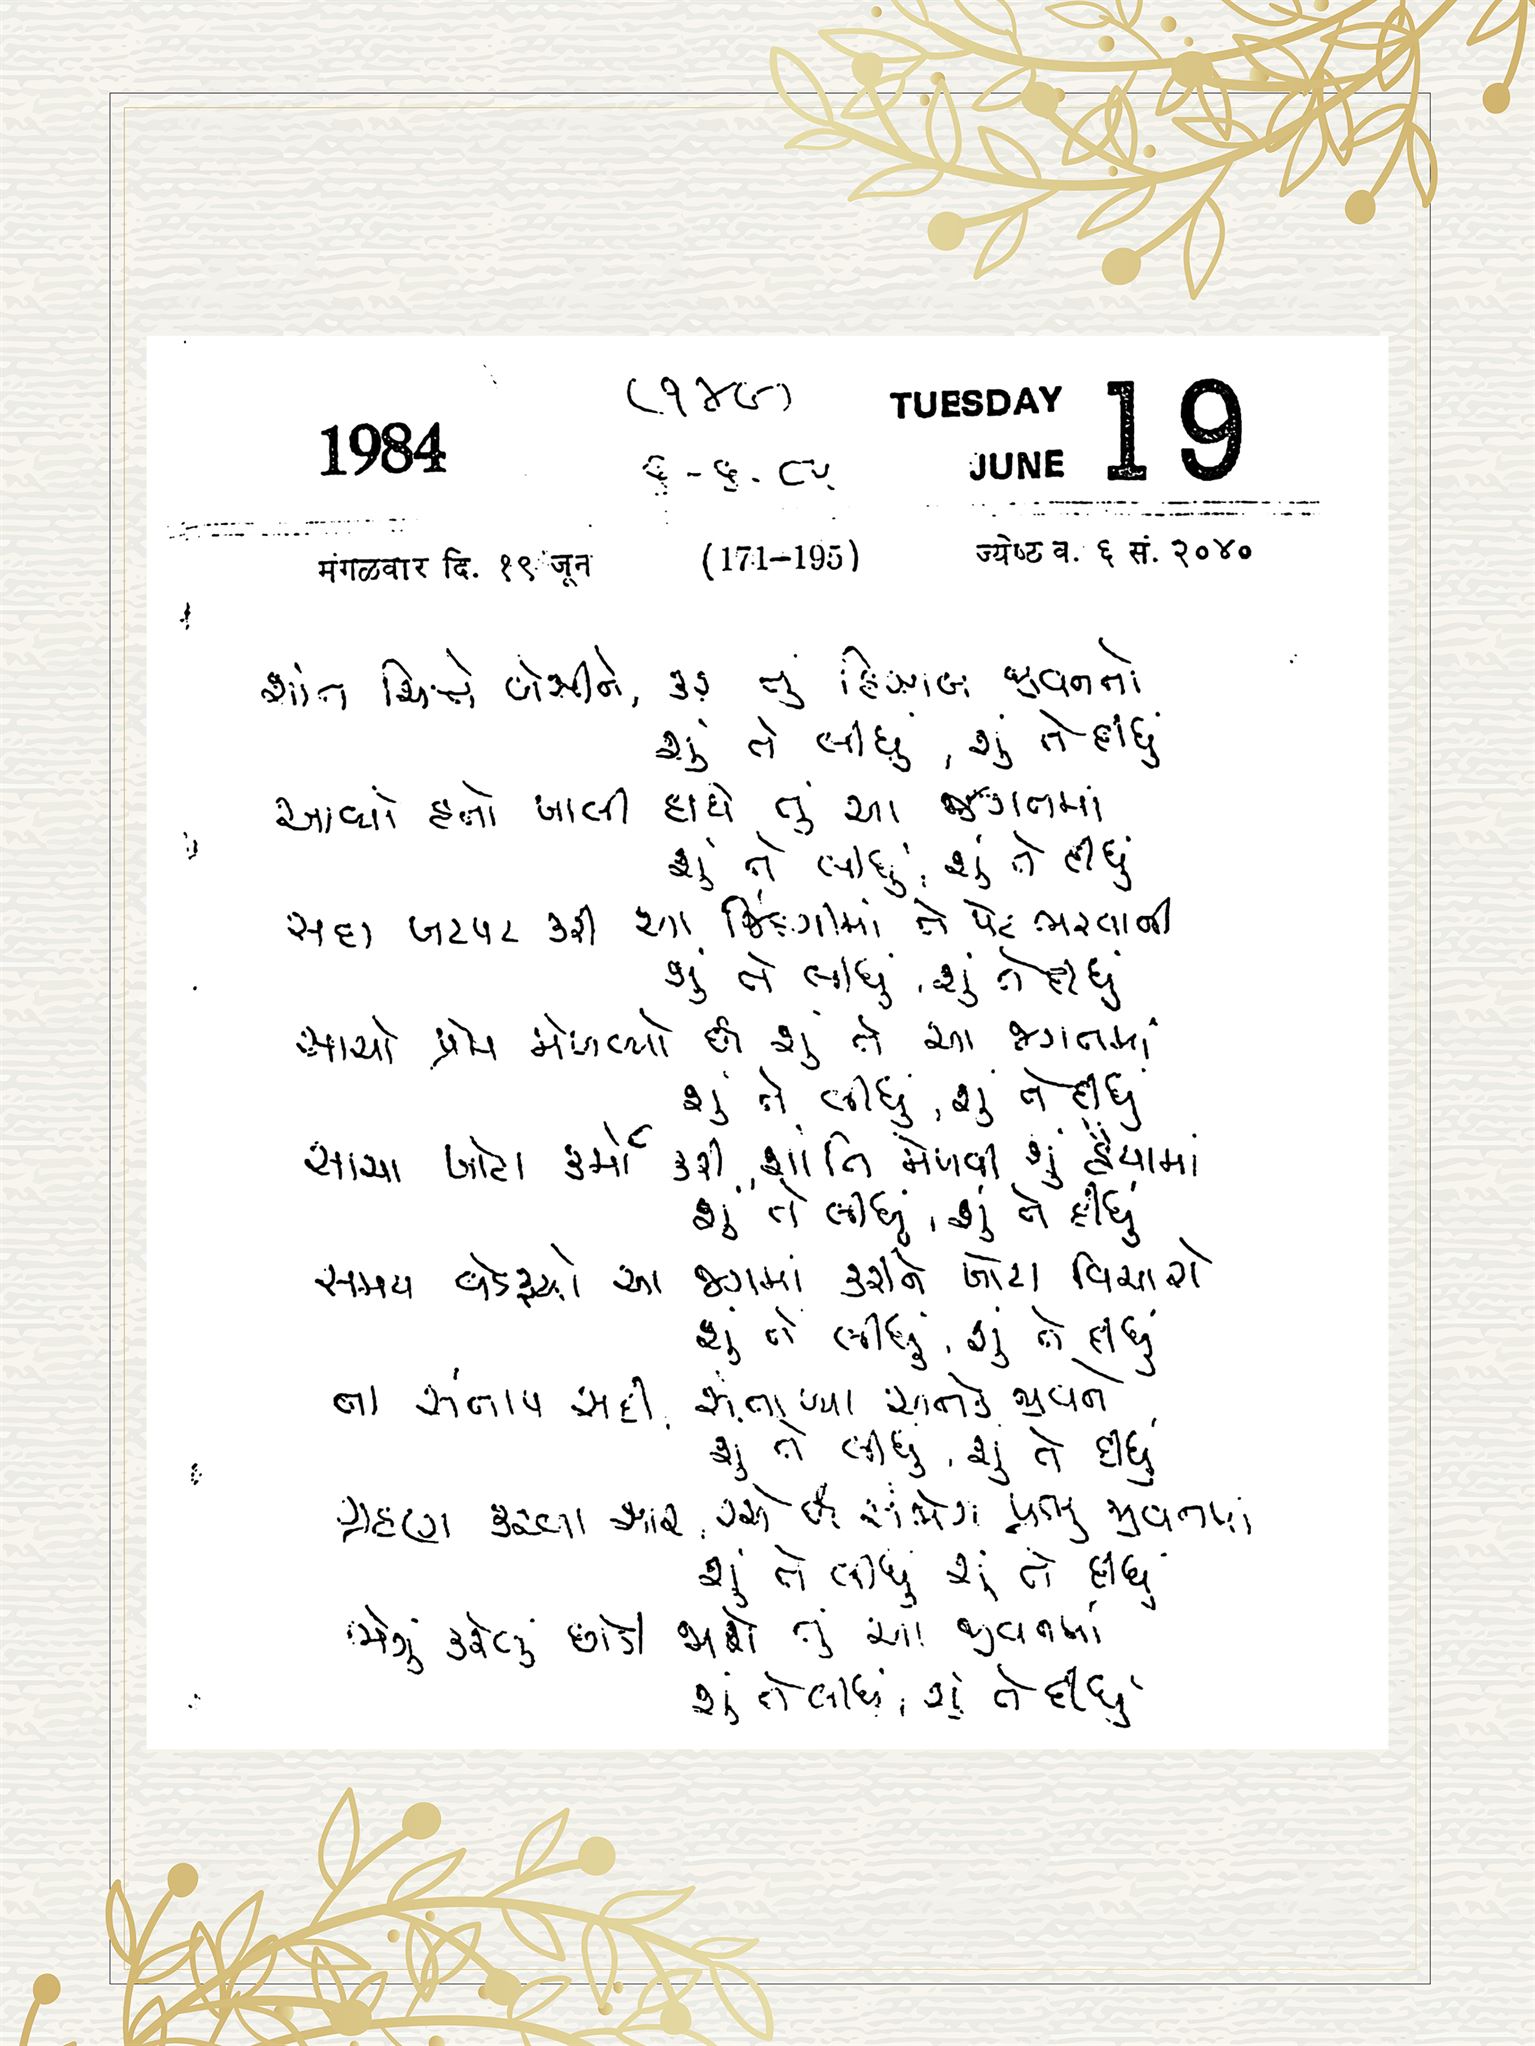 (૧૪૭)
TUESDAY 19
1984
૬-૬-૮૫
JUNE
मंगळवार दि. १९ जून (171–195) ज्येष्ठ व. ६ सं. २०४०
શાંત ચિત્તે બેસીને, કર તું હિસાબ જીવનનો
શું તેં લીધું, શું તેં દીધું
આવ્યો હતો ખાલી હાથે તું આ જગતમાં
શું તેં લીધું, શું તેં દીધું
સદા ખટપટ કરી આ જિંદગીમાં તેં પેટ ભરવાની
શું તેં લીધું, શું તેં દીધું
સાચો પ્રેમ મેળવ્યો છે શું તેં આ જગતમાં
શું તેં લીધું, શું તેં દીધું
સાચા ખોટા કર્મો કરી, શાંતિ મેળવી શું હૈયામાં
શું તેં લીધું, શું તેં દીધું
સમય વેડફ્યો આ જગમાં કરીને ખોટા વિચારો
શું તેં લીધું, શું તેં દીધું
ના સંતાપ સહી, સંતાપ્યા અનેક જીવને
શું તેં લીધું, શું તેં દીધું
ગ્રહણ કરવા સાર, છે પ્રભુ જીવનમાં
શું તેં લીધું શું તેં દીધું
ભેગું કરેલું છોડી જાશે તું આ જીવનમાં
શું તેં લીધું, શું તેં દીધું